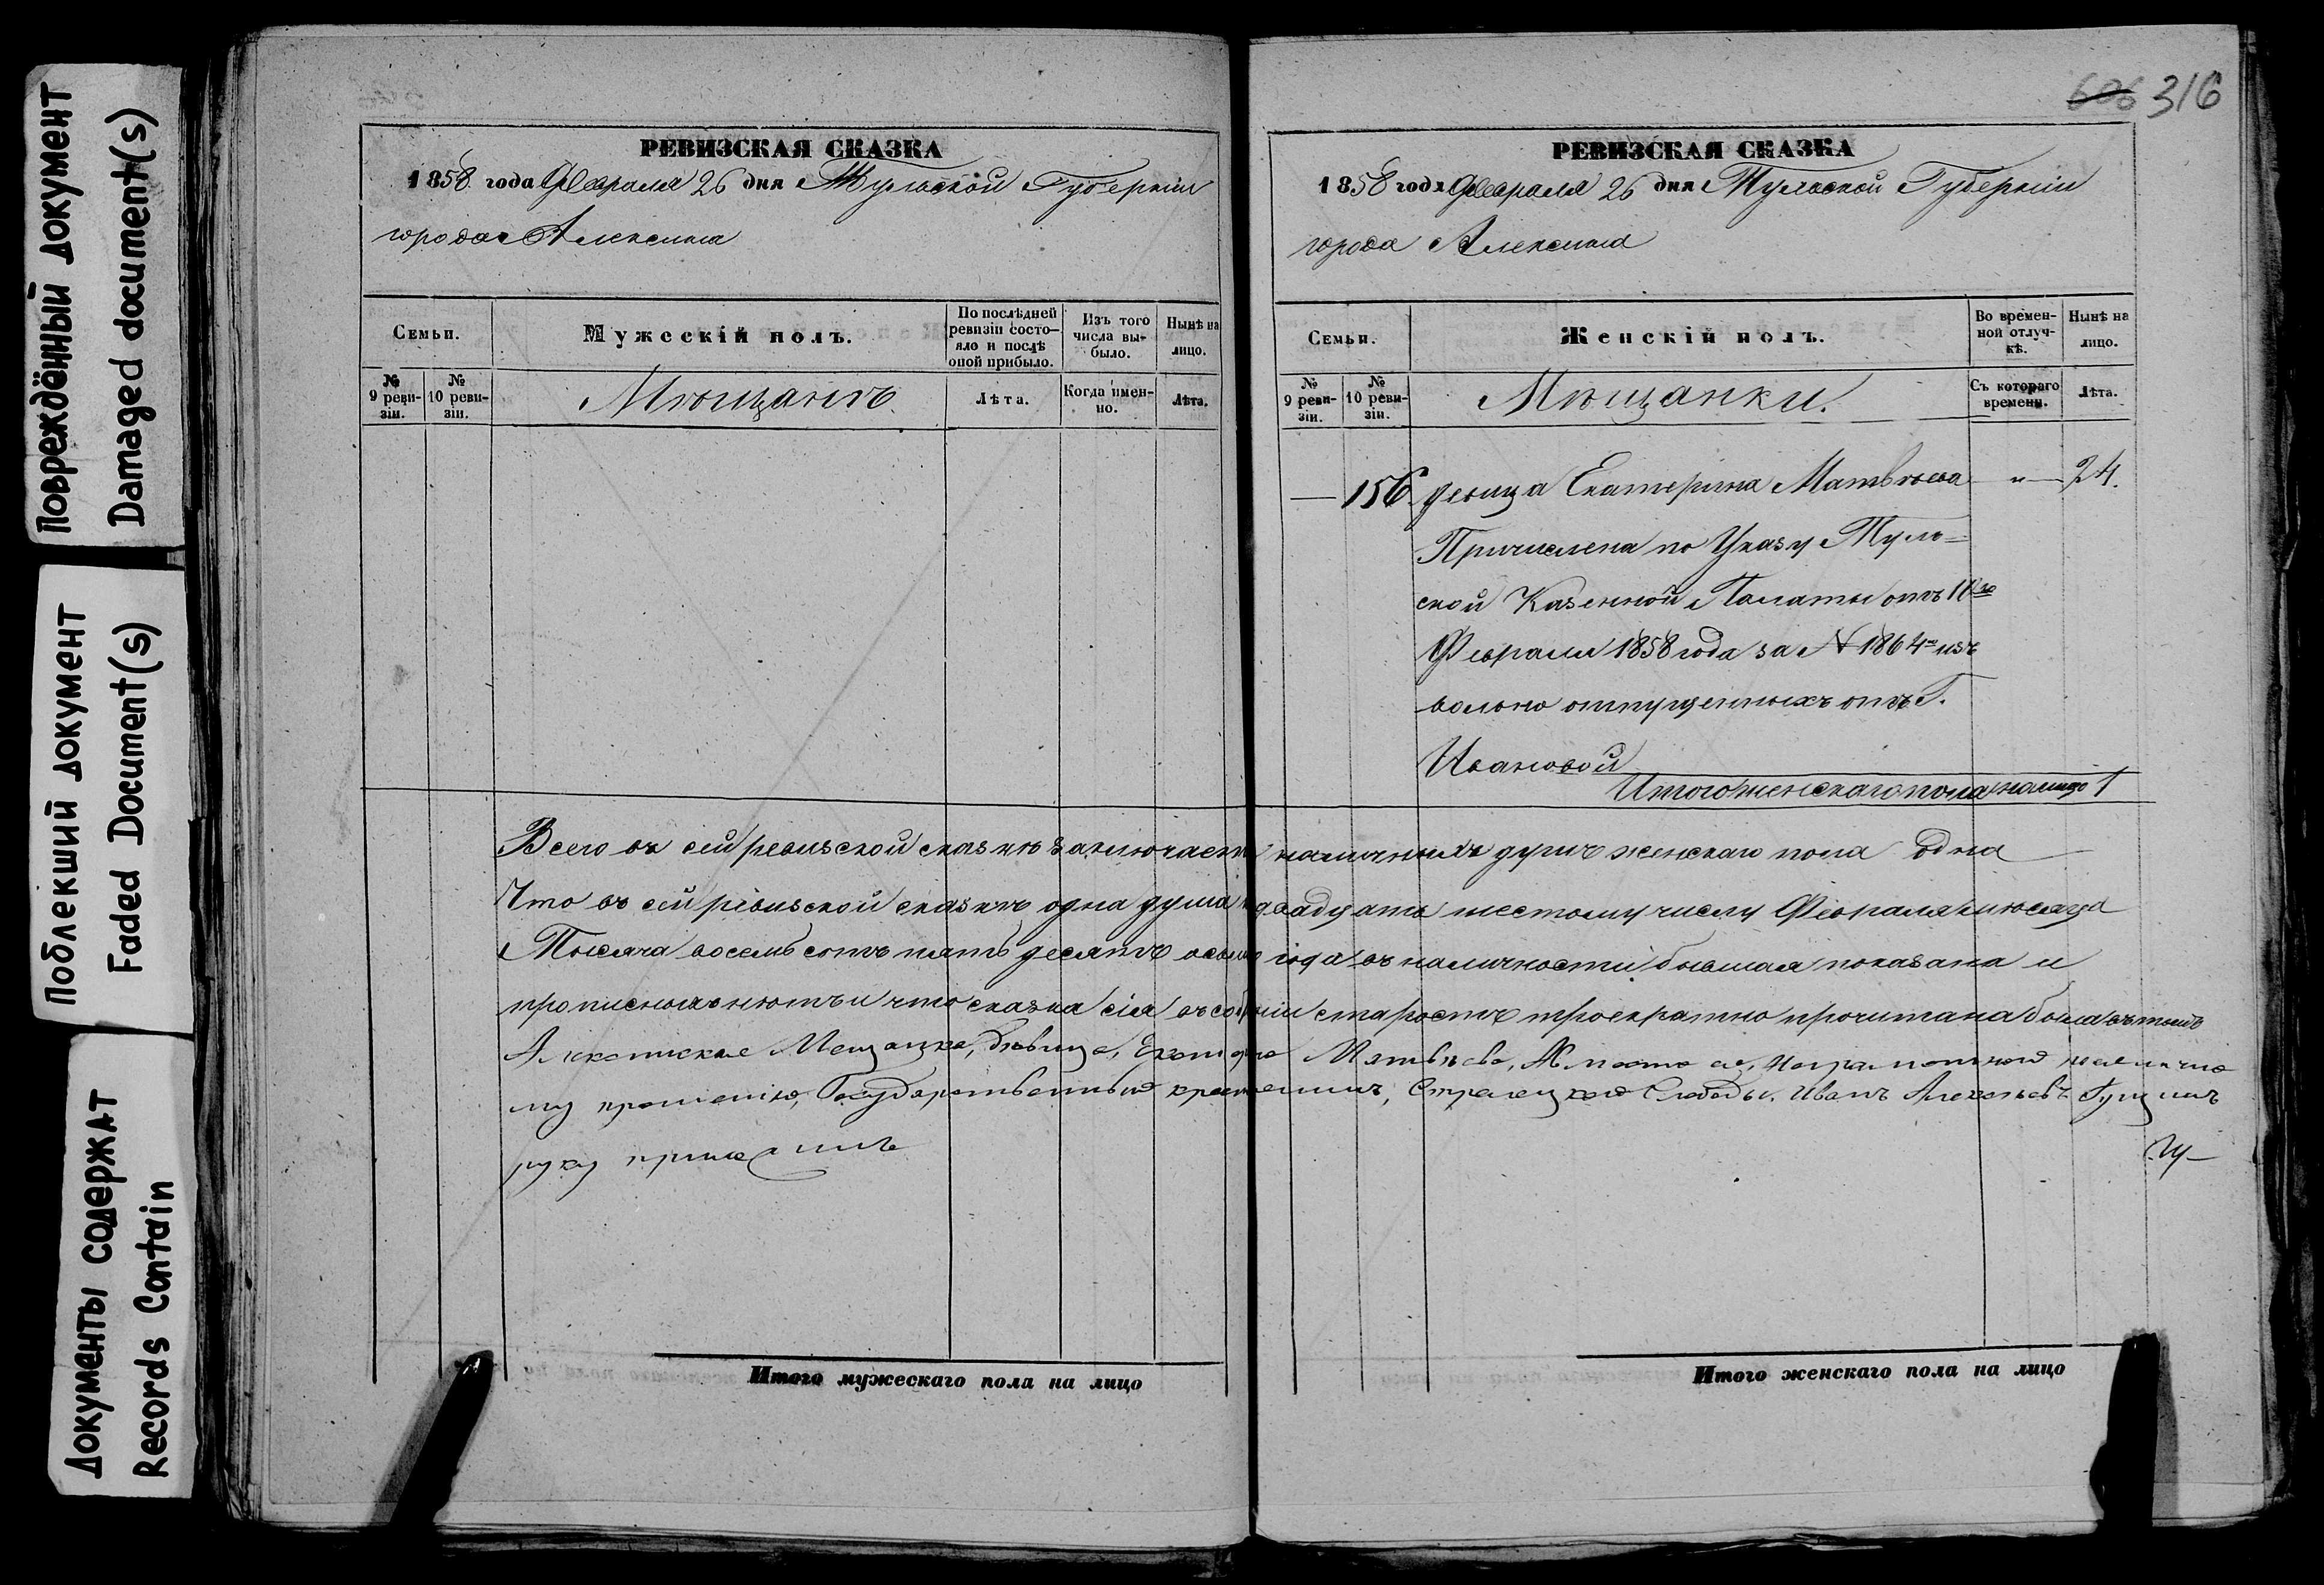 Повреждённый документ
Damaged document(s)
Поблекший документ
Faded Document(s)
Документы содержат
Records Contain
РЕВИЗСКАЯ СКАЗКА
1858 года Февраля 26 дня Тульской Губерніи
города Алексина
Семьи.
Мужескій полъ.
По послѣдней
ревизіи состо-
яло и послѣ
оной прибыло.
Изъ того
числа вы-
было.
Нынѣ на
лицо.
№
9 реви-
зіи.
№
10 реви-
зіи.
Мѣщанъ
Лѣта.
Когда имен-
но.
Лѣта.
606 316
РЕВИЗСКАЯ СКАЗКА
1858 года Февраля 26 дня Тульской Губерніи
города Алексина
Семьи.
Женскій полъ.
Во времен-
ной отлуч-
кѣ.
Нынѣ на
лицо.
№
9 реви-
зіи.
№
10 реви-
зіи.
Мѣщанки.
Съ котораго
времени.
Лѣта.
— 156 девица Екатерина Матвѣева — „ — 24.
Причислена по Указу Туль=
ской Казенной Палаты отъ 11го
Февраля 1858 года за № 1864 изъ
вольно отпущенныхъ отъ Г.
Ивановой
Итого женскаго пола налицо 1
Всего въ сей ревизской сказкѣ заключается наличныхъ душъ женскаго пола одна
Что въ сей ревизской сказкѣ одна душа къ двадцать шестому числу Февраля мѣсяца
Тысяча восемь сотъ пять десятъ осьмаго года въ наличности бывшая показана и
прописныхъ нѣтъ и что сказка сія въ собраніи старостъ троекратно прочитана была въ томъ
Алексинская Мещанка, дѣвица, Екатерина Матвѣева, А вместо ее, неграмотной по ея лично
му прошенію, Государственный крестьянинъ, Стрелецкой Слободы, Иванъ Алексѣевъ Гущинъ
руку приложилъ
Итого мужескаго пола на лицо
Итого женскаго пола на лицо